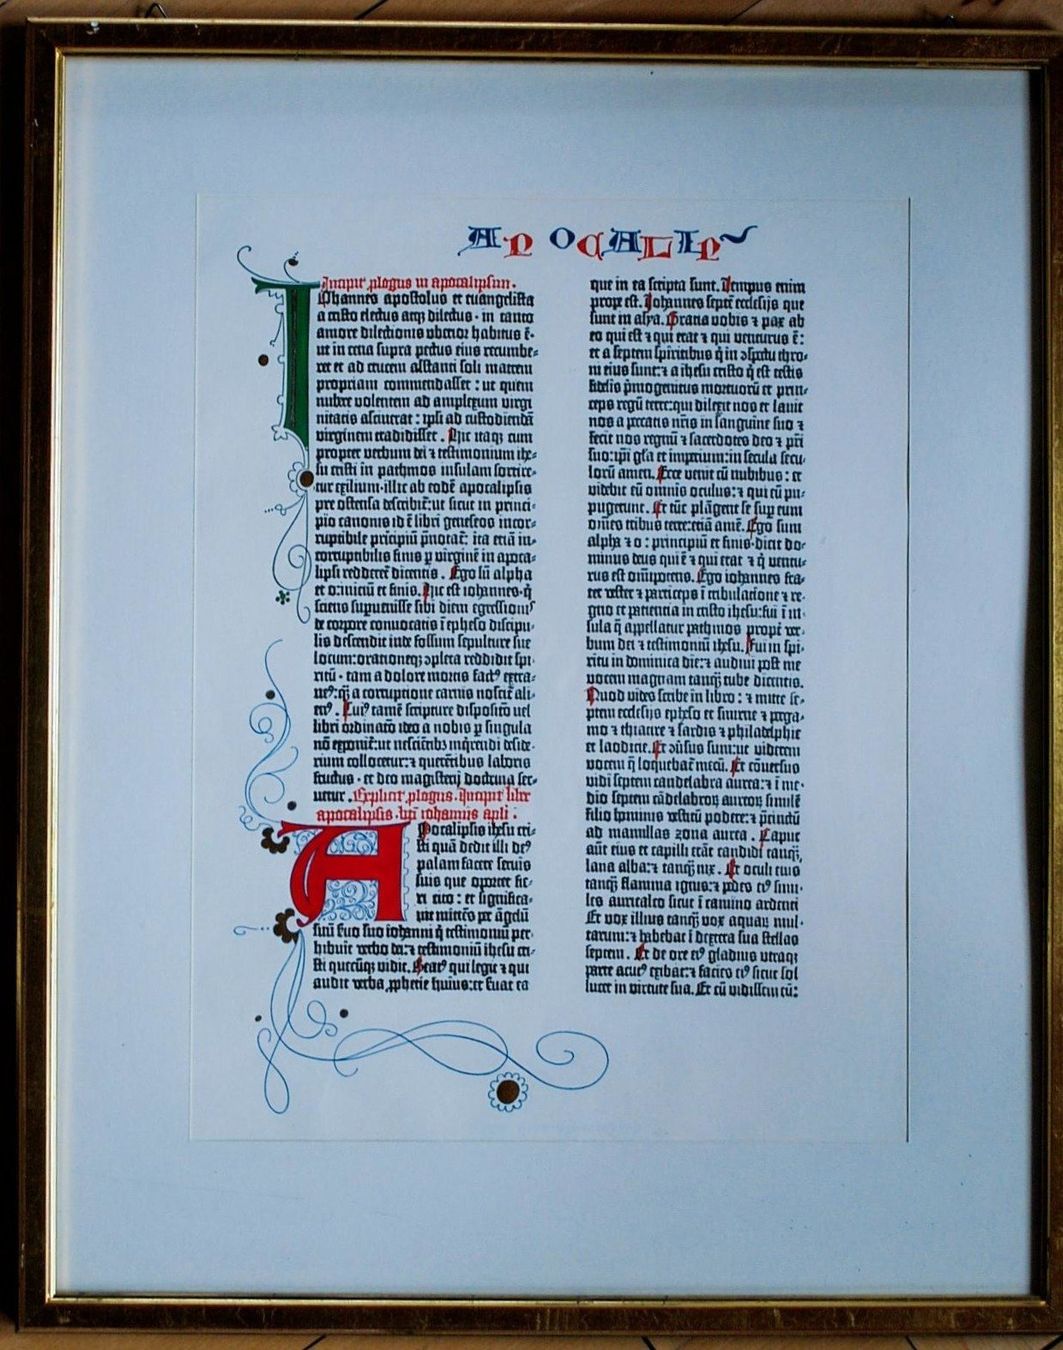 APOCALIP
Incipit ꝓlogus in apocalipsim.
Iohannes apostolus et euangelista
a cristo electus atqꝫ dilectus · in tanto
amore dilectionis uberior habitus ē·
ut in cena supra pectus eius recumbe-
ret et ad crucem astanti soli matrem
propriam commendasset : ut quem
nubere volentem ad amplexum virgi
nitatis asciuerat : ipsi ad custodiendā
virginem tradidisset . Hic itaqꝫ cum
propter verbum dei ⁊ testimonium ihe-
su cristi in pathmos insulam sortire-
tur exilium · illic ab eodē apocalipsis
pre ostensa describit̄:ut sicut in princi-
pio canonis id ē libri geneseos incor-
ruptibile principiū p̄notat̄: ita etiā in-
corruptibilis finis ꝑ virginē in apoca-
lipsi redderet̄ dicentis . Ego sū alpha
et o:iniciū et finis. Hic est iohannes · q̇
sciens superuenisse sibi diem egressionis
de corpore conuocatis ī epheso discipu-
lis descendit inde fossum sepulture sue
locum:orationeqꝫ ɔpleta reddidit spi-
ritū · tam a dolore mortis factꝰ extra-
neꝰ:q̄ꝫ a corruptione carnis noscit̄ ali-
enꝰ. Cuiꝰ tamē scripture dispositō uel
libri ordinatō ideo a nobis ꝑ singula
nō exponit̄:ut nescientibꝫ inq̇rendi deside-
rium collocetur:⁊ querētibus laboris
fructus · et deo magisterij doctrina ser-
uetur . Explicit ꝓlogus. Incipit liber
apocalipsis · bt̄i iohannis apl̄i .
Apocalipsis ihesu cri-
sti quā dedit illi deꝰ
palam facere seruis
suis que oportet fie-
ri cito : et significa-
uit mittēs per āgelū
suū seruo suo iohanni q̇ testimoniū per-
hibuit verbo dei:⁊ testimoniū ihesu cri-
sti quecūqꝫ vidit. Beatꝰ qui legit ⁊ qui
audit verba ꝓphetie huius:et seruat ea
que in ea scripta sunt. Tempus enim
prope est. Iohannes septē ecclesijs que
sunt in asya. Gratia vobis ⁊ pax ab
eo qui est ⁊ qui erat ⁊ qui venturus ē:
et a septem spiritibus q̇ in ɔspectu thro-
ni eius sunt:⁊ a ihesu cristo q̇ est testis
fidelis ṗmogenitus mortuorū et prin-
ceps regū terre:qui dilexit nos et lauit
nos a peccatis nr̄is in sanguine suo ⁊
fecit nos regnū ⁊ sacerdotes deo ⁊ pr̄i
suo:ip̄i gl̄a et imperium:in secula secu-
lorū amen. Ecce venit cū nubibus : et
videbit eū omnis oculus:⁊ qui eū pu-
pugerunt. Et tūc plāgent se suꝑ eum
om̄es tribus terre:etiā amē. Ego sum
alpha ⁊ o : principiū et finis·dicit do-
minus deus qui ē ⁊ qui erat ⁊ q̇ ventu-
rus est om̄ipotens. Ego iohannes fra-
ter vester ⁊ particeps ī tribulatione ⁊ re-
gno et patientia in cristo ihesu:fui ī in-
sula q̄ appellatur pathmos propt̄ ver-
bum dei ⁊ testimoniū ihesu. Fui in spi-
ritu in dominica die:⁊ audiui post me
vocem magnam tanqꝫ tube dicentis.
Quod vides scribe in libro : ⁊ mitte se-
ptem ecclesijs epheso et smirne ⁊ perga-
mo ⁊ thiatire ⁊ sardis ⁊ philadelphie
et laodicie. Et ɔuersus sum:ut viderem
vocem q̄ loquebat̄ mecū. Et cōuersus
vidi septem candelabra aurea:⁊ ī me-
dio septem cādelabroꝝ aureoꝝ similē
filio hominis vestitū podere:⁊ p̄cinctū
ad mamillas zona aurea . Caput
aūt eius et capilli erāt candidi tanqꝫ
lana alba:⁊ tanqꝫ nix . Et oculi eius
tanqꝫ flamma ignis:⁊ pedes eiꝰ simi-
les auricalco sicut ī camino ardenti
Et vox illius tanqꝫ vox aquaꝝ mul-
tarum:⁊ habebat ī dextera sua stellas
septem . Et de ore eiꝰ gladius utraqꝫ
parte acutꝰ exibat:⁊ facies eiꝰ sicut sol
lucet in virtute sua. Et cū vidissem eū: